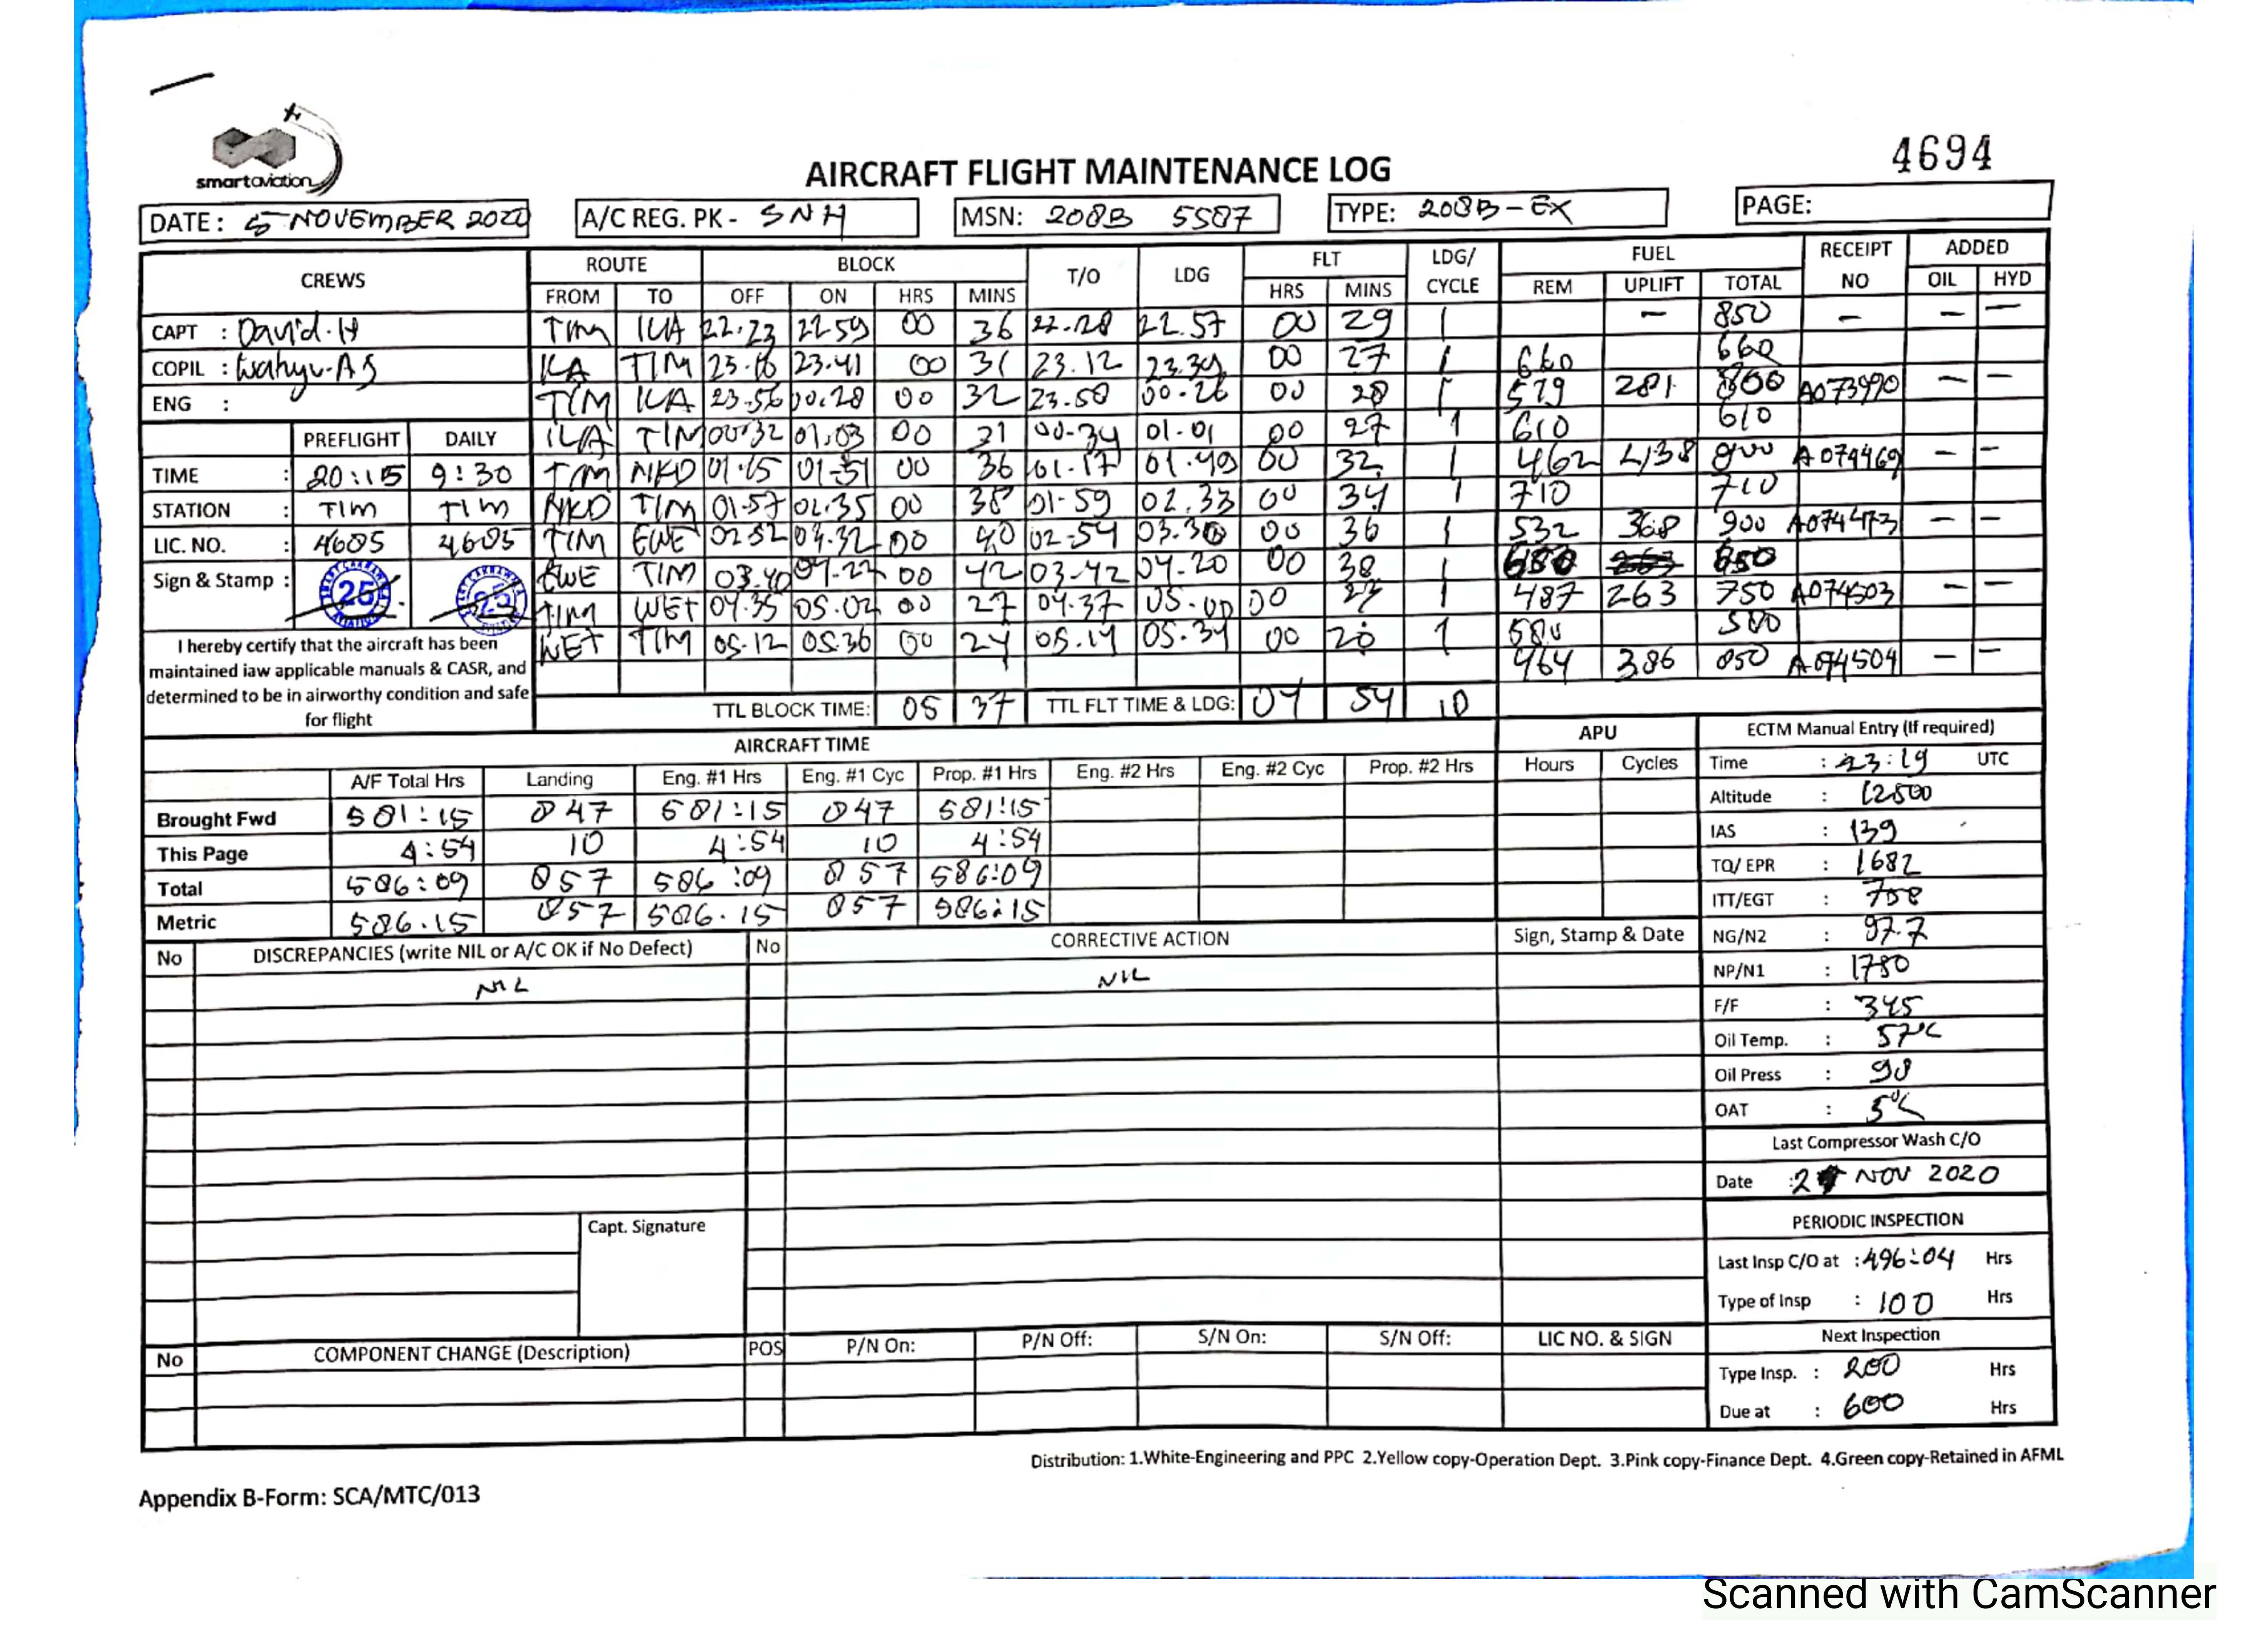 4694
smartaviation
AIRCRAFT FLIGHT MAINTENANCE LOG
DATE : 5 NOVEMBER 2020 A/C REG. PK - SNH MSN: 208B 5587 TYPE: 208B-EX PAGE:
CREWS ROUTE BLOCK T/O LDG FLT LDG/ CYCLE FUEL RECEIPT NO ADDED
FROM TO OFF ON HRS MINS HRS MINS REM UPLIFT TOTAL OIL HYD
CAPT : David.H TIM ILA 22.23 22.59 00 36 22.28 22.57 00 29 1 - 850 - - -
COPIL : Wahyu.AS ILA TIM 23.41 00 31 23.12 23.39 00 27 1 660 660
ENG : TIM ILA 23.56 00.28 00 32 23.58 00.26 00 28 1 579 281 860 A073990 - -
PREFLIGHT DAILY ILA TIM 00.32 01.03 00 31 00.34 01.01 00 27 1 610 610
TIME : 20:15 9:30 TIM NKD 01.15 01.51 00 36 01.17 01.49 00 32 1 462 900 A074469 - -
STATION : TIM TIM NKD TIM 01.57 02.35 00 38 01.59 02.33 00 34 1 710 710
LIC. NO. : 4605 4605 TIM EWE 02.52 03.32 00 40 02.54 03.30 00 36 1 532 368 900 A074473 - -
Sign & Stamp : 25 25 EWE TIM 03.40 04.22 00 42 03.42 04.20 00 38 1
TIM WET 04.35 05.02 00 27 04.37 05.00 00 23 1 487 263 750 A074503 - -
WET TIM 05.12 05.36 00 24 05.14 05.34 00 20 1 580 580
464 386 850 A074504 - -
I hereby certify that the aircraft has been
maintained iaw applicable manuals & CASR, and
determined to be in airworthy condition and safe
for flight
TTL BLOCK TIME: 05 37 TTL FLT TIME & LDG: 04 54 10
AIRCRAFT TIME APU ECTM Manual Entry (If required)
A/F Total Hrs Landing Eng. #1 Hrs Eng. #1 Cyc Prop. #1 Hrs Eng. #2 Hrs Eng. #2 Cyc Prop. #2 Hrs Hours Cycles Time : 23:19 UTC
Brought Fwd 581:15 847 581:15 847 581:15 Altitude : 12500
This Page 4:54 10 4:54 10 4:54 IAS : 139
Total 586:09 857 586:09 857 586:09 TQ/ EPR : 1682
Metric 586.15 857 586.15 857 586.15 ITT/EGT : 708
No DISCREPANCIES (write NIL or A/C OK if No Defect) No CORRECTIVE ACTION Sign, Stamp & Date NG/N2 : 97.7
NIL NIL NP/N1 : 1750
F/F : 345
Oil Temp. : 57°C
Oil Press : 98
OAT : 5°C
Last Compressor Wash C/O
Date : NOV 2020
Capt. Signature PERIODIC INSPECTION
Last Insp C/O at : 496:04 Hrs
Type of Insp : 100 Hrs
No COMPONENT CHANGE (Description) POS P/N On: P/N Off: S/N On: S/N Off: LIC NO. & SIGN Next Inspection
Type Insp. : 200 Hrs
Due at : 600 Hrs
Distribution: 1.White-Engineering and PPC 2.Yellow copy-Operation Dept. 3.Pink copy-Finance Dept. 4.Green copy-Retained in AFML
Appendix B-Form: SCA/MTC/013
Scanned with CamScanner